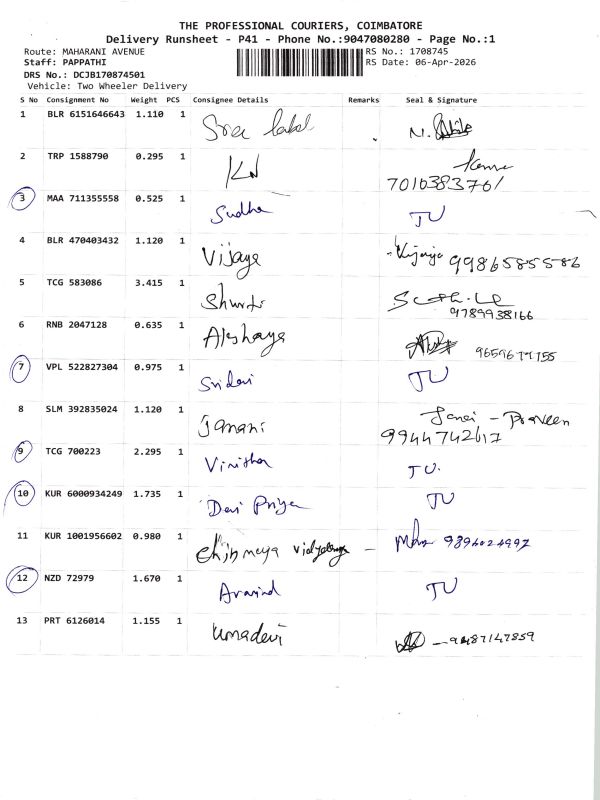 THE PROFESSIONAL COURIERS, COIMBATORE
Delivery Runsheet - P41 - Phone No.:9047080280 - Page No.:1
Route: MAHARANI AVENUE RS No.: 1708745
Staff: PAPPATHI RS Date: 06-Apr-2026
DRS No.: DCJB170874501
Vehicle: Two Wheeler Delivery
S No Consignment No Weight PCS Consignee Details Remarks Seal & Signature
1 BLR 6151646643 1.110 1 Sree N.
2 TRP 1588790 0.295 1 KN
7016383761
3 MAA 711355558 0.525 1 Sudha JU
4 BLR 470403432 1.120 1 Vijaya Vijaya 9986585586
5 TCG 583086 3.415 1 Shruti
9789938166
6 RNB 2047128 0.635 1 Akshaya
7 VPL 522827304 0.975 1 Sridevi JU
8 SLM 392835024 1.120 1 Janani Janai - Praveen
9944742617
9 TCG 700223 2.295 1 Vinitha JU.
10 KUR 6000934249 1.735 1 Devi Priya JU
11 KUR 1001956602 0.980 1 Chinmaya Vidyalaya -
12 NZD 72979 1.670 1 Aravind JU
13 PRT 6126014 1.155 1 Umadevi - 9487147859